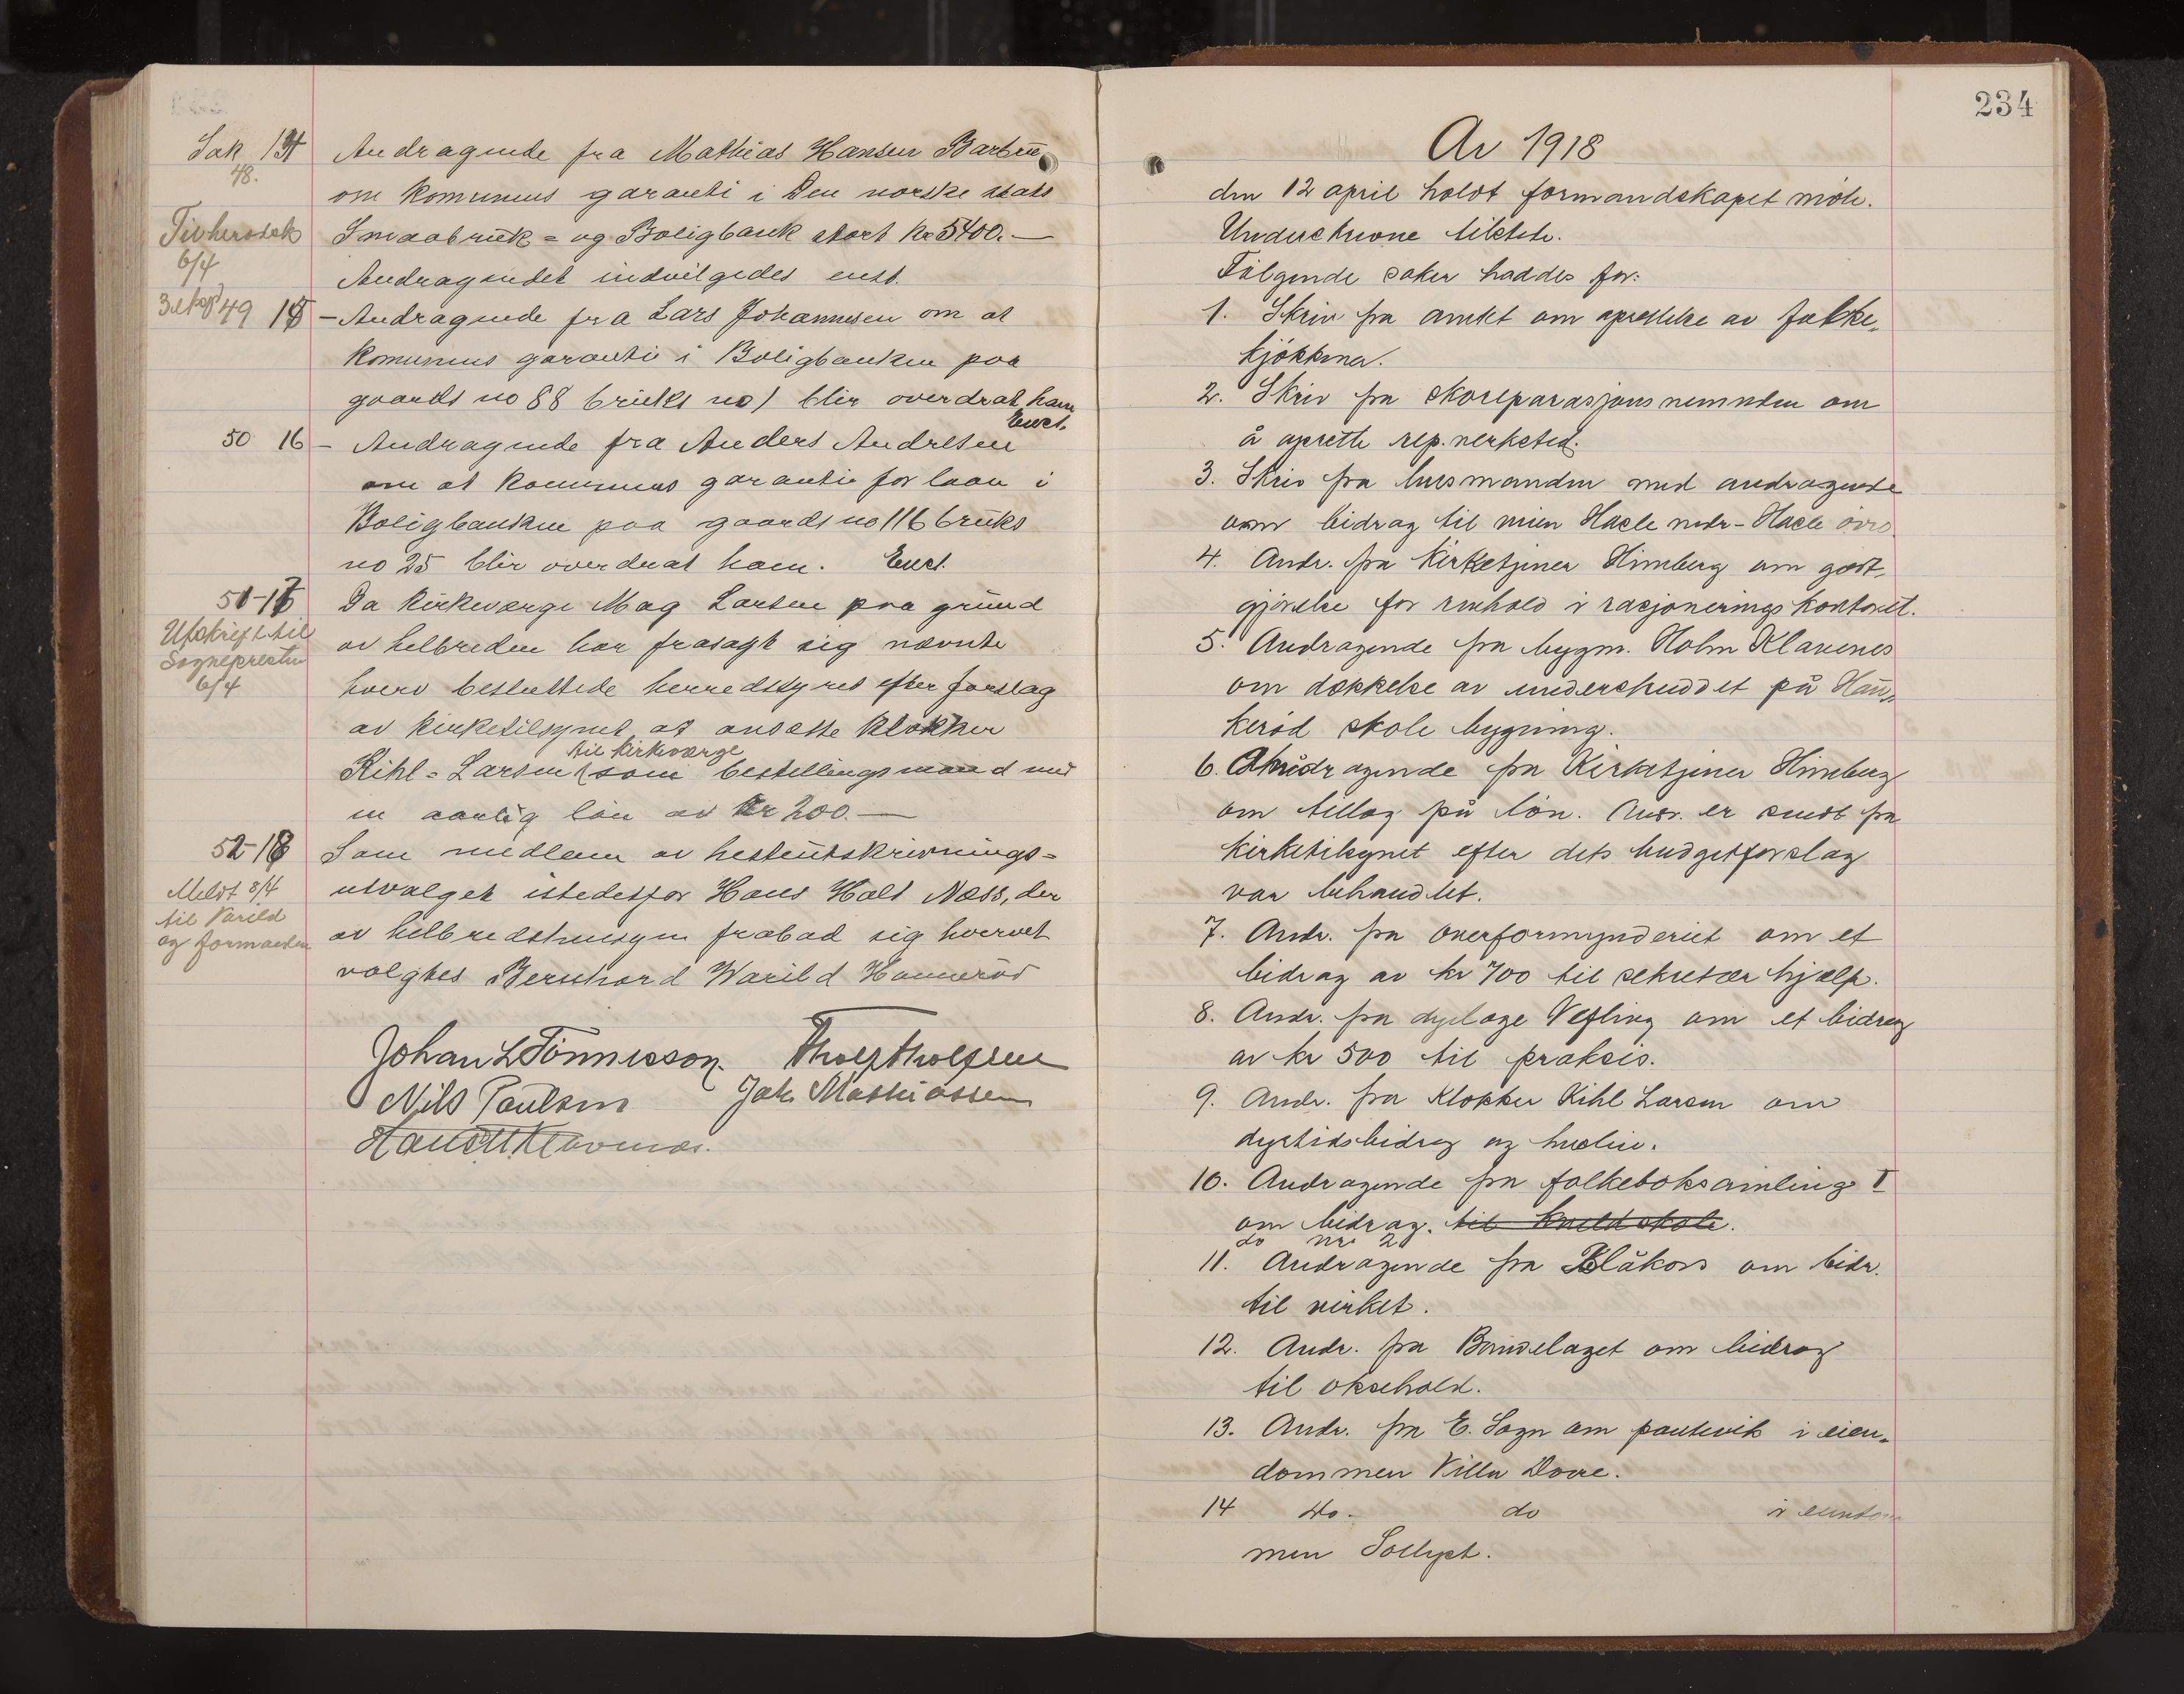 Sak 14 Andragende fra Mathias Hansen
48.
om komunens garanti i Den norske stats
Smaabruk = og Boligbank stort kr 5400.—
6/4
Andragendet indvilgedes enst.
49 15 – Andragende fra Lars Johannesen om at
komunens garanti i Boligbanken paa
gaards no 88 bruks no 1 blir overdrat ham
Enst.
50 16 – Andragende fra Anders Andresen
om at komunens garanti for laan i
Boligbanken paa gaards no 116 bruks
no 25 blir overdrat ham. Enst.
51-17 Da kirkeværge Mag Larsen paa grund
Utskrift til
Sognepresten
6/4
av helbreden har frasagt sig nævnte
hverv besluttede herredstyret efter forslag
av kirketilsynet at ansætte klokker
til kirkeværge
Kihl = Larsen som bestillingsmand med
en aarlig løn av kr 200.—
52-18 Som medlem av hesteutskrivnings=
Meldt 8/4
til Varild
og formanden
utvalget istedetfor Hans Holt Næss, der
av helbredshensyn frabad sig hvervet
valgtes Bernhard Warild Hannerød
Johan L Tönnesson.
Nils Paulsen Jak. Mathiassen
234
År 1918
den 12 april holdt formandskapet møte.
Underskrevne tilstede.
Følgende saker haddes for:
1. Skriv fra amtet om oprettelse av folke-
kjøkkener.
2. Skriv fra skoreparasjonsnemnden om
å oprette rep. verksted.
3. Skriv fra lensmanden med andragende
om bidrag til veien Hasle nedr - Hasle øvre
4. Andr. fra kirketjener Himberg om godt-
gjørelse for renhold i rasjoneringskontoret.
5. Andragende fra bygm. Holm Klavenes
om dækkelse av underskuddet på Hau-
kerød skole bygning.
6. Andragende fra Kirketjener Himberg
om tillæg på løn. Andr. er sendt fra
kirketilsynet efter dets budgetforslag
var behandlet.
7. Andr. fra overformynderiet om et
bidrag av kr 700 til sekretær hjælp.
8. Andr. fra dyrlæge Vefling om et bidrag
av kr 500 til praksis.
9. Andr. fra klokker Kihl Larsen om
dyrtidsbidrag og husleie.
10. Andragende fra folkeboksamling I
om bidrag. til kveldskole.
do nr. 2
11. Andragende fra Blåkors om bidr.
til virket.
12. Andr. fra Bondelaget om bidrag
til oksehold.
13. Andr. fra E. Sogn om pantevik i eien-
dommen Villa Dovre.
14 do. do i eiendom
men Sollyst.